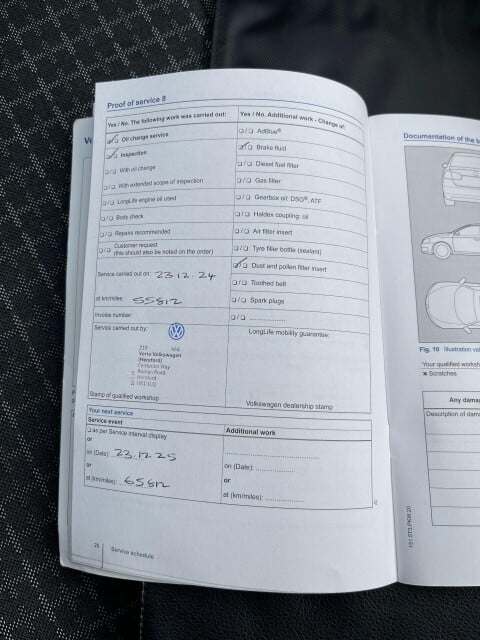 Proof of service 8
Yes / No. The following work was carried out:
☑/☐ Oil change service
☑/☐ Inspection
☐/☐ With oil change
☐/☐ With extended scope of inspection
☐/☐ LongLife engine oil used
☐/☐ Body check
☐/☐ Repairs recommended
☐/☐ Customer request
(this should also be noted on the order)
Service carried out on: 23.12.24
at km/miles 55812
Invoice number:
Service carried out by:
Vertu Volkswagen
(Hereford)
Centurion Way
Roman Road
Hereford
HR1 1LQ
Stamp of qualified workshop
Yes / No. Additional work - Change of:
☐/☐ AdBlue®
☑/☐ Brake fluid
☐/☐ Diesel fuel filter
☐/☐ Gas filter
☐/☐ Gearbox oil: DSG®, ATF
☐/☐ Haldex coupling: oil
☐/☐ Air filter insert
☐/☐ Tyre filler bottle (sealant)
☑/☐ Dust and pollen filter insert
☐/☐ Toothed belt
☐/☐ Spark plugs
☐/☐ ....................
LongLife mobility guarantee:
Volkswagen dealership stamp
Your next service
Service event
☐ as per Service interval display
or
on (Date): 23.12.25
or
at (km/miles): 65812
Additional work
on (Date): ....................
or
at (km/miles): ....................
Service schedule
Documentation of the b
Fig. 10 Illustration va
Your qualified worksh
× Scratches
Any dama
Description of dam